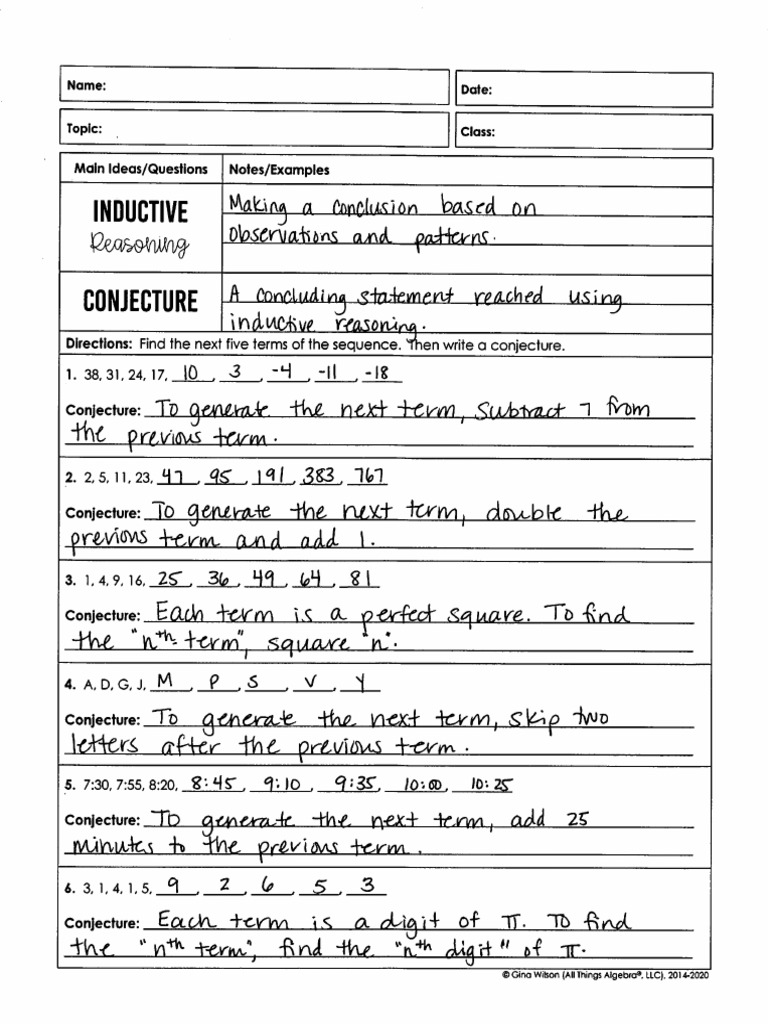 Name:
Date:
Topic:
Class:
Main Ideas/Questions Notes/Examples
INDUCTIVE
Reasoning
Making a conclusion based on
observations and patterns.
CONJECTURE
A concluding statement reached using
inductive reasoning.
Directions: Find the next five terms of the sequence. Then write a conjecture.
1. 38, 31, 24, 17, 10, 3, -4, -11, -18
Conjecture: To generate the next term, subtract 7 from
the previous term.
2. 2, 5, 11, 23, 47, 95, 191, 383, 767
Conjecture: To generate the next term, double the
previous term and add 1.
3. 1, 4, 9, 16, 25, 36, 49, 64, 81
Conjecture: Each term is a perfect square. To find
the "nth term", square "n".
4. A, D, G, J, M, P, S, V, Y
Conjecture: To generate the next term, skip two
letters after the previous term.
5. 7:30, 7:55, 8:20, 8:45, 9:10, 9:35, 10:00, 10:25
Conjecture: To generate the next term, add 25
minutes to the previous term.
6. 3, 1, 4, 1, 5, 9, 2, 6, 5, 3
Conjecture: Each term is a digit of π. To find
the "nth term", find the "nth digit" of π.
© Gina Wilson (All Things Algebra®, LLC), 2014-2020